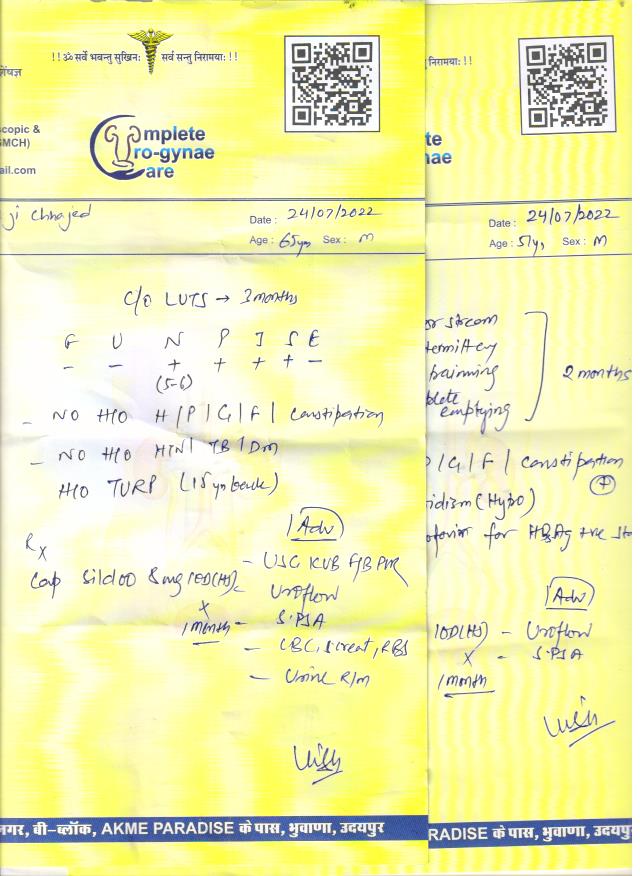 !! ॐ सर्वे भवन्तु सुखिनः सर्व सन्तु निरामयाः !!
शेषज्ञ
scopic &
GMCH)
ail.com
omplete
ro-gynae
are
ji Chhajed
Date : 24/07/2022
Age : 65yrs Sex : M
C/O LUTS → 3 months
F U N P I S E
– – + + + + –
(5-6)
– NO H/O H/P/G/F/ Constipation
– NO H/O HTN/ TB/DM
H/O TURP (15 yr back)
Rx
Cap Sildoo 8mg 1OD(HS)
x
1 month
Adv
– USG KUB
– Uroflow
– S.PSA
– CBC, S.creat, RBS
– Urine R/M
नगर, बी–ब्लॉक, AKME PARADISE के पास, भुवाणा, उदयपुर
निरामयाः !!
te
nae
Date : 24/07/2022
Age : 51yr Sex : M
or stream
2 months
emptying
/G/F/ constipation
+
idism (Hypo)
for HBsAg +ve
Adv
1OD(HS) – Uroflow
x – S.PSA
1 month
RADISE के पास, भुवाणा, उदयपु